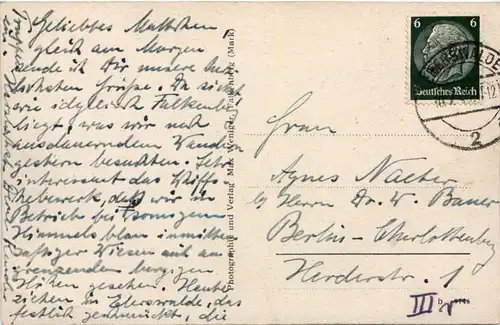 Geliebtes Muttchen,
gleich am Morgen
sende ich Dir unsere
lichsten Grüße. Du siehst
wie idyllisch Falkenbg.
liegt, was wir nach
ausdauerndem Wandern
gestern besuchten. Sehr
interessant das Schiffs-
hebewerk, das wir in
Betrieb bei sonnigem
Himmelsblau inmitten
saftiger Wiesen mit an-
grenzenden bergigen
Höhen gesehen. Heute
ziehen in Eberswalde, das
festlich geschmückt, die
Photographie und Verlag Max Weniger, Falkenberg (Mark)
6 6
Deutsches Reich
2
Frau
Agnes Naeter
b/ Herrn Dr. W. Bauer
Berlin-Charlottenburg
Herderstr. 1
III